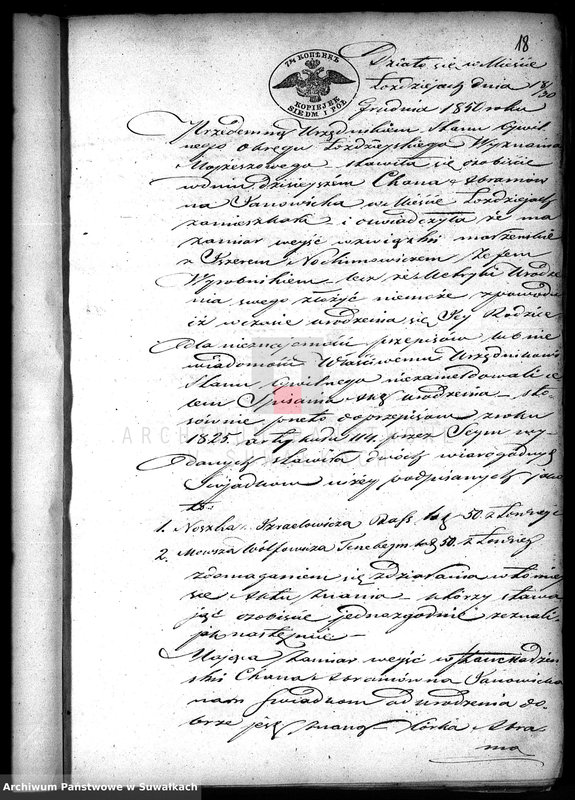 18
7½ КОПѢЕКЪ
KOPIEJEK
SIEDM I PÓŁ
Działo się w Mieście
Łozdziejach dnia 18/30
Grudnia 1850 roku
Przedemną Urzędnikiem Stanu Cywil
nego Okręgu Łozdziejskiego Wyznania
Mojżeszowego stawiła się osobiście
w dniu dzisiejszém Chana Abramów
na Janowicka w Mieście Łozdziejach
zamieszkała i oświadczyła że ma
zamiar wejść w związki małżenskie
z Nochimowiczem
Wyrobnikiem lecz że Metryki Urodze
nia swego złożyć niemoże z powodu
iż w czasie urodzenia się Jey Rodzice
dla nieznajomości przepisów lub nie
wiadomości Właściwemu Urzędnikowi
Stanu Cywilnego niezameldowali ce
lem Spisania Aktu urodzenia sto
sownie przeto do przepisów z roku
1825 art 114 przez Seym wy
danych stawiła dwóch wiarogodnych
Swiadków niżej podpisanych jako
to
1. Noszka Izraelowicza lat 50
2. Mowsza Wolfowicza lat 50
z domaganiem się zdziałania w to miej
sce Aktu znania którzy stawa
jąc osobiście jednozgodnie zeznali
jak następuie
Mająca zamiar wejść w
Chana Abramówna Janowicka
nam Swiadkom od urodzenia do
brze jest znaną Córka Abra
ma
ARCHIWUM PAŃSTWOWE
W SUWAŁKACH
Archiwum Państwowe w Suwałkach